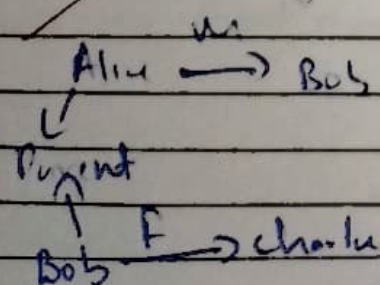 Alice Bob
Parent
Bob F Charlie